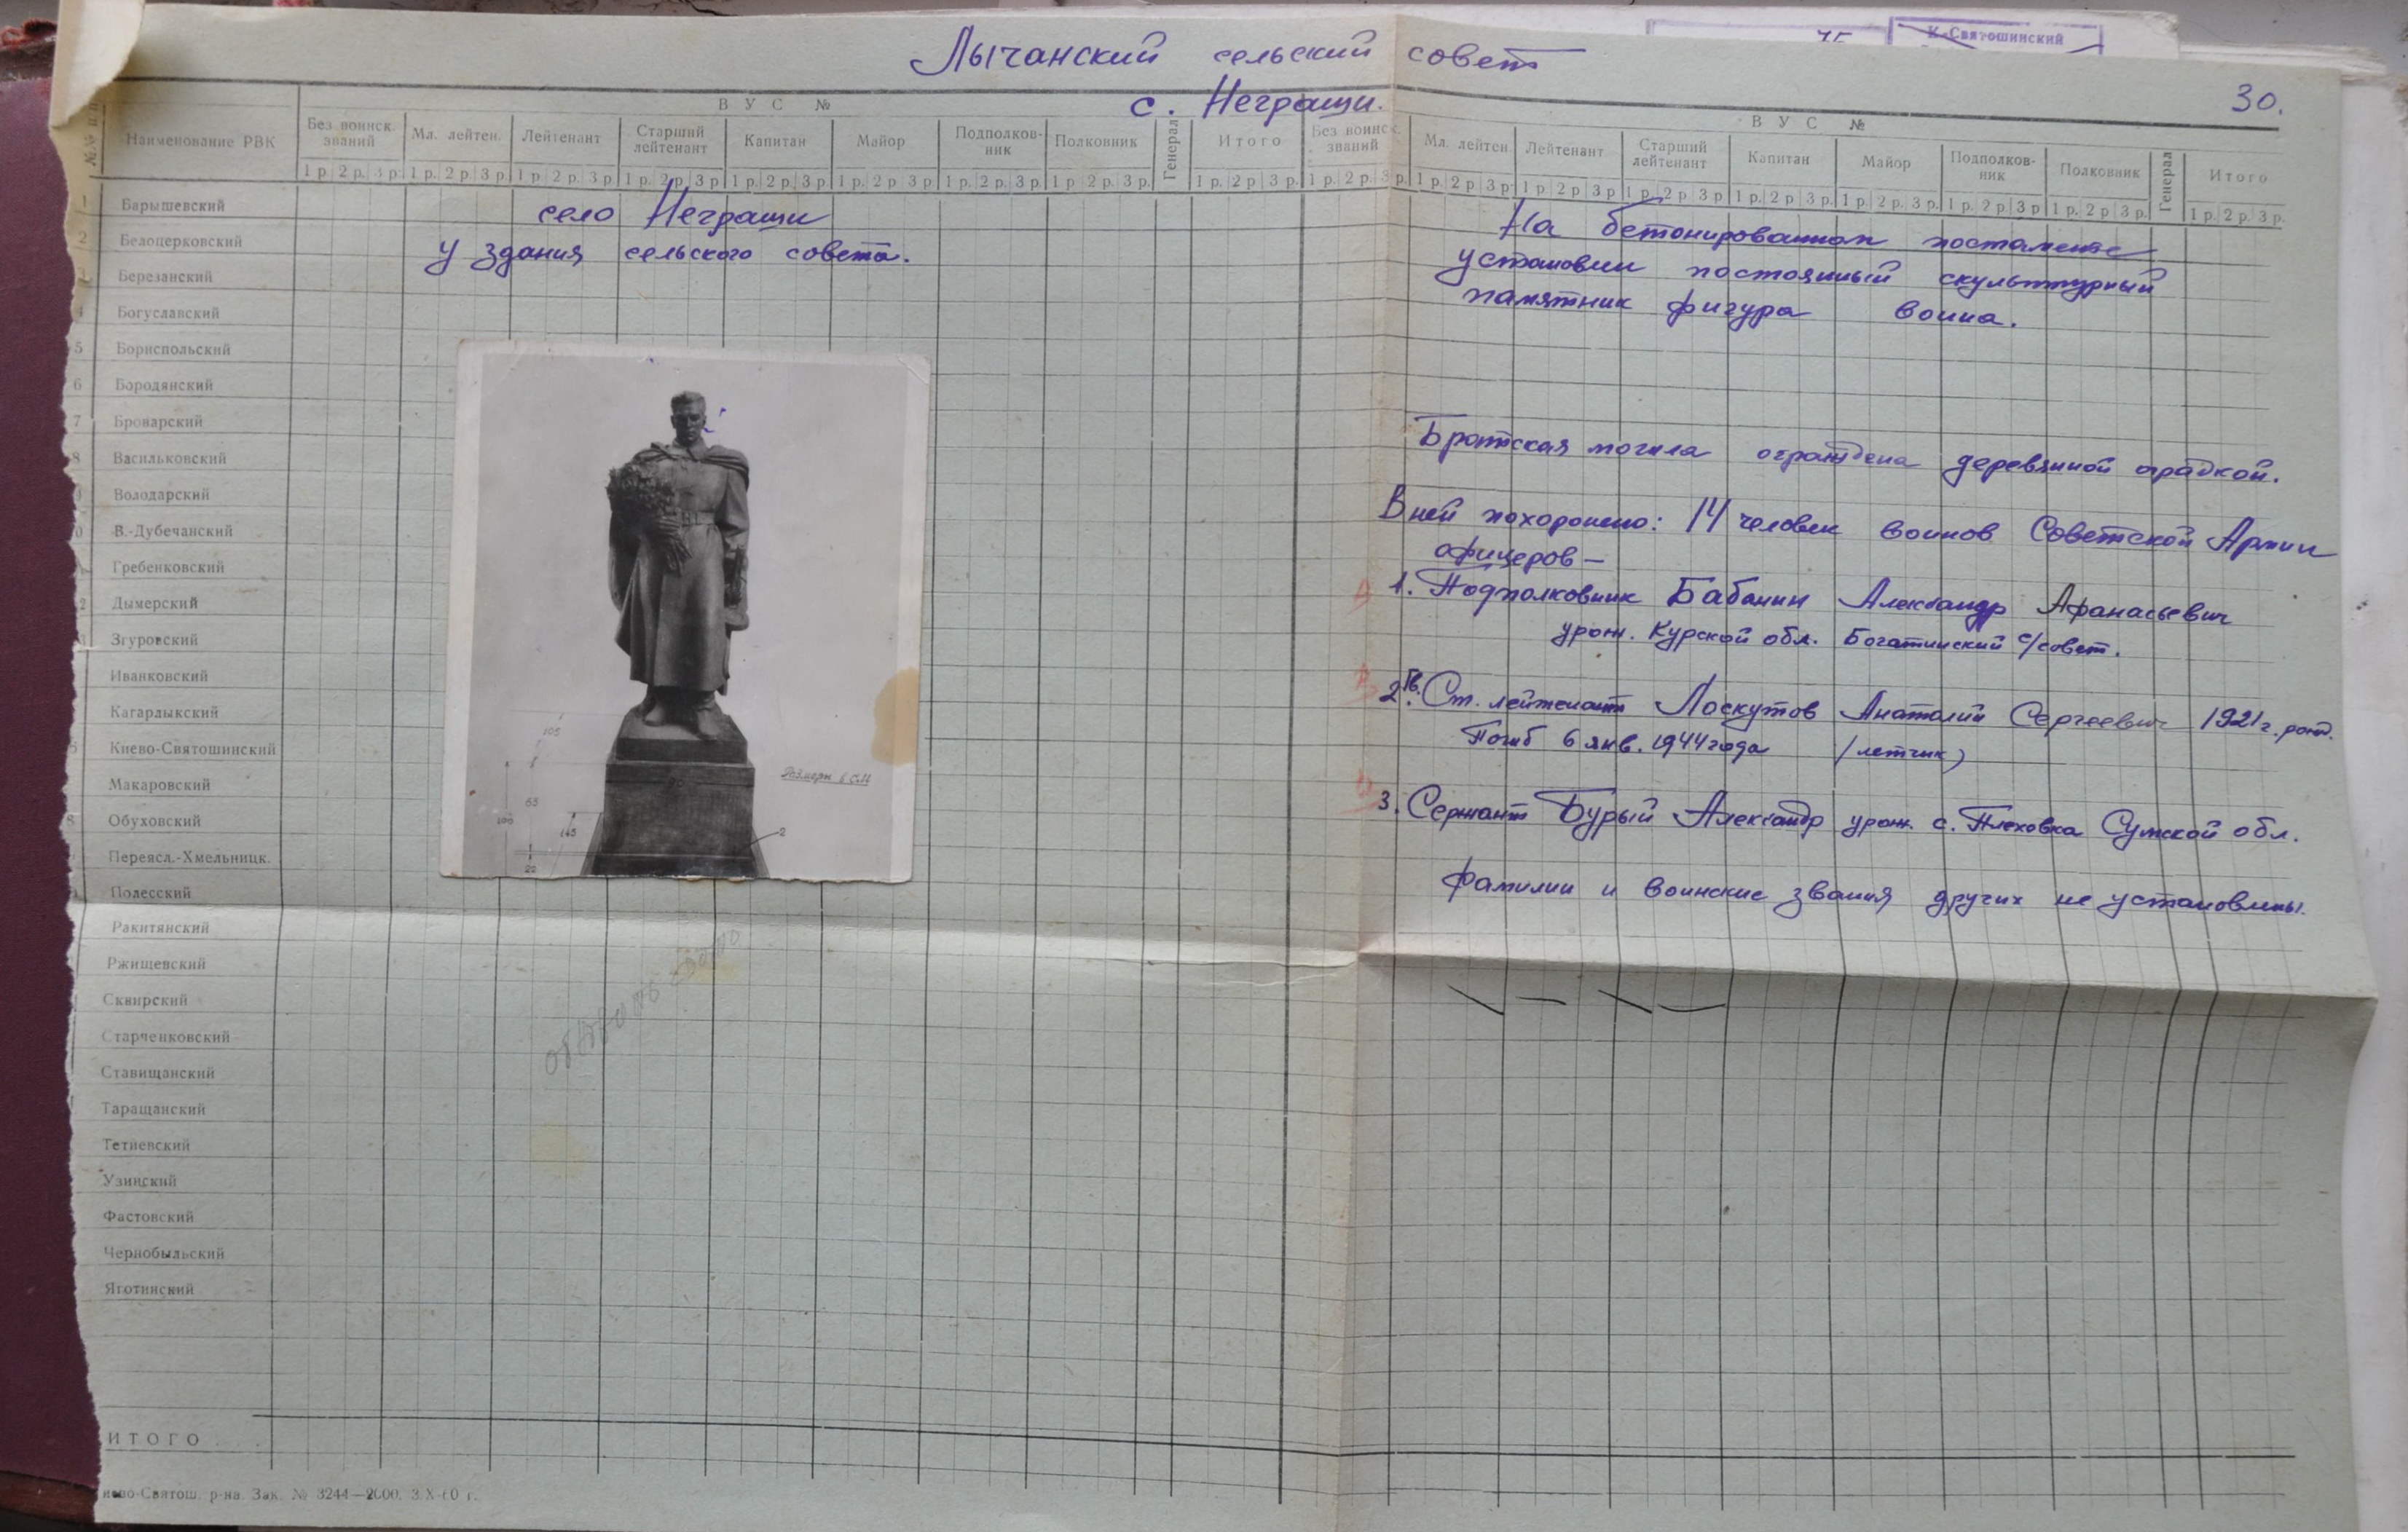 К-Святошинский
Лычанский сельский совет
с. Неграши.
30.
№№ п.п.
Наименование РВК
В У С №
Без воинск. званий
Мл. лейтен.
Лейтенант
Старший лейтенант
Капитан
Майор
Подполков-ник
Полковник
Генерал
Итого
1 р. 2 р. 3 р. 1 р. 2 р. 3 р. 1 р. 2 р. 3 р. 1 р. 2 р. 3 р. 1 р. 2 р. 3 р. 1 р. 2 р. 3 р. 1 р. 2 р. 3 р. 1 р. 2 р. 3 р. 1 р. 2 р. 3 р.
В У С №
Без воинск. званий
Мл. лейтен.
Лейтенант
Старший лейтенант
Капитан
Майор
Подполков-ник
Полковник
Генерал
Итого
1 р. 2 р. 3 р. 1 р. 2 р. 3 р. 1 р. 2 р. 3 р. 1 р. 2 р. 3 р. 1 р. 2 р. 3 р. 1 р. 2 р. 3 р. 1 р. 2 р. 3 р. 1 р. 2 р. 3 р. 1 р. 2 р. 3 р.
1 Барышевский
2 Белоцерковский
3 Березанский
4 Богуславский
5 Бориспольский
6 Бородянский
7 Броварский
8 Васильковский
Володарский
В.-Дубечанский
Гребенковский
2 Дымерский
3 Згуровский
Иванковский
Кагарлыкский
Киево-Святошинский
Макаровский
8 Обуховский
Переясл.-Хмельницк.
Полесский
Ракитянский
Ржищевский
Сквирский
Старченковский
Ставищанский
Таращанский
Тетиевский
Узинский
Фастовский
Чернобыльский
Яготинский
ИТОГО
село Неграши
у здания сельского совета.
105
63
100
145
22
2
Размеры в см
На бетонированном постаменте
установлен постоянный скульптурный
памятник фигура воина.
Братская могила ограждена деревянной оградкой.
В ней похоронено: 14 человек воинов Советской Армии
офицеров —
1. Подполковник Бабанин Александр Афанасьевич
урож. Курской обл. Богатинский с/совет.
2. Гв. Ст. лейтенант Лоскутов Анатолий Сергеевич 1921 г. рожд.
Погиб 6 янв. 1944 года (летчик)
3. Сержант Бурый Александр урож. с. Плеховка Сумской обл.
фамилии и воинские звания других не установлены.
ево-Святош. р-на. Зак. № 3244—2000. 3.X-60 г.